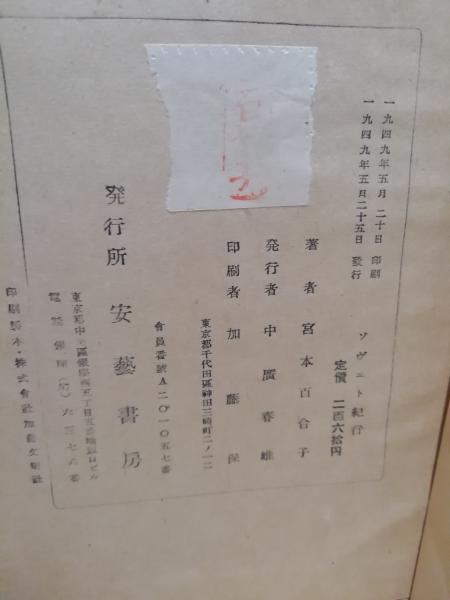 一九四九年五月二十日 印刷
一九四九年五月二十五日 發行
ソヴェト紀行
定價 二百六拾円
著者 宮本百合子
発行者 中廣春雄
印刷者 加藤保
東京都千代田區神田三崎町二ノ一二
會員番號A二〇一〇五七番
発行所 安藝書房
東京都中央區銀座西五丁目五番地
電話銀座(57)六三七六番
印刷製本・株式會社加藤文明社